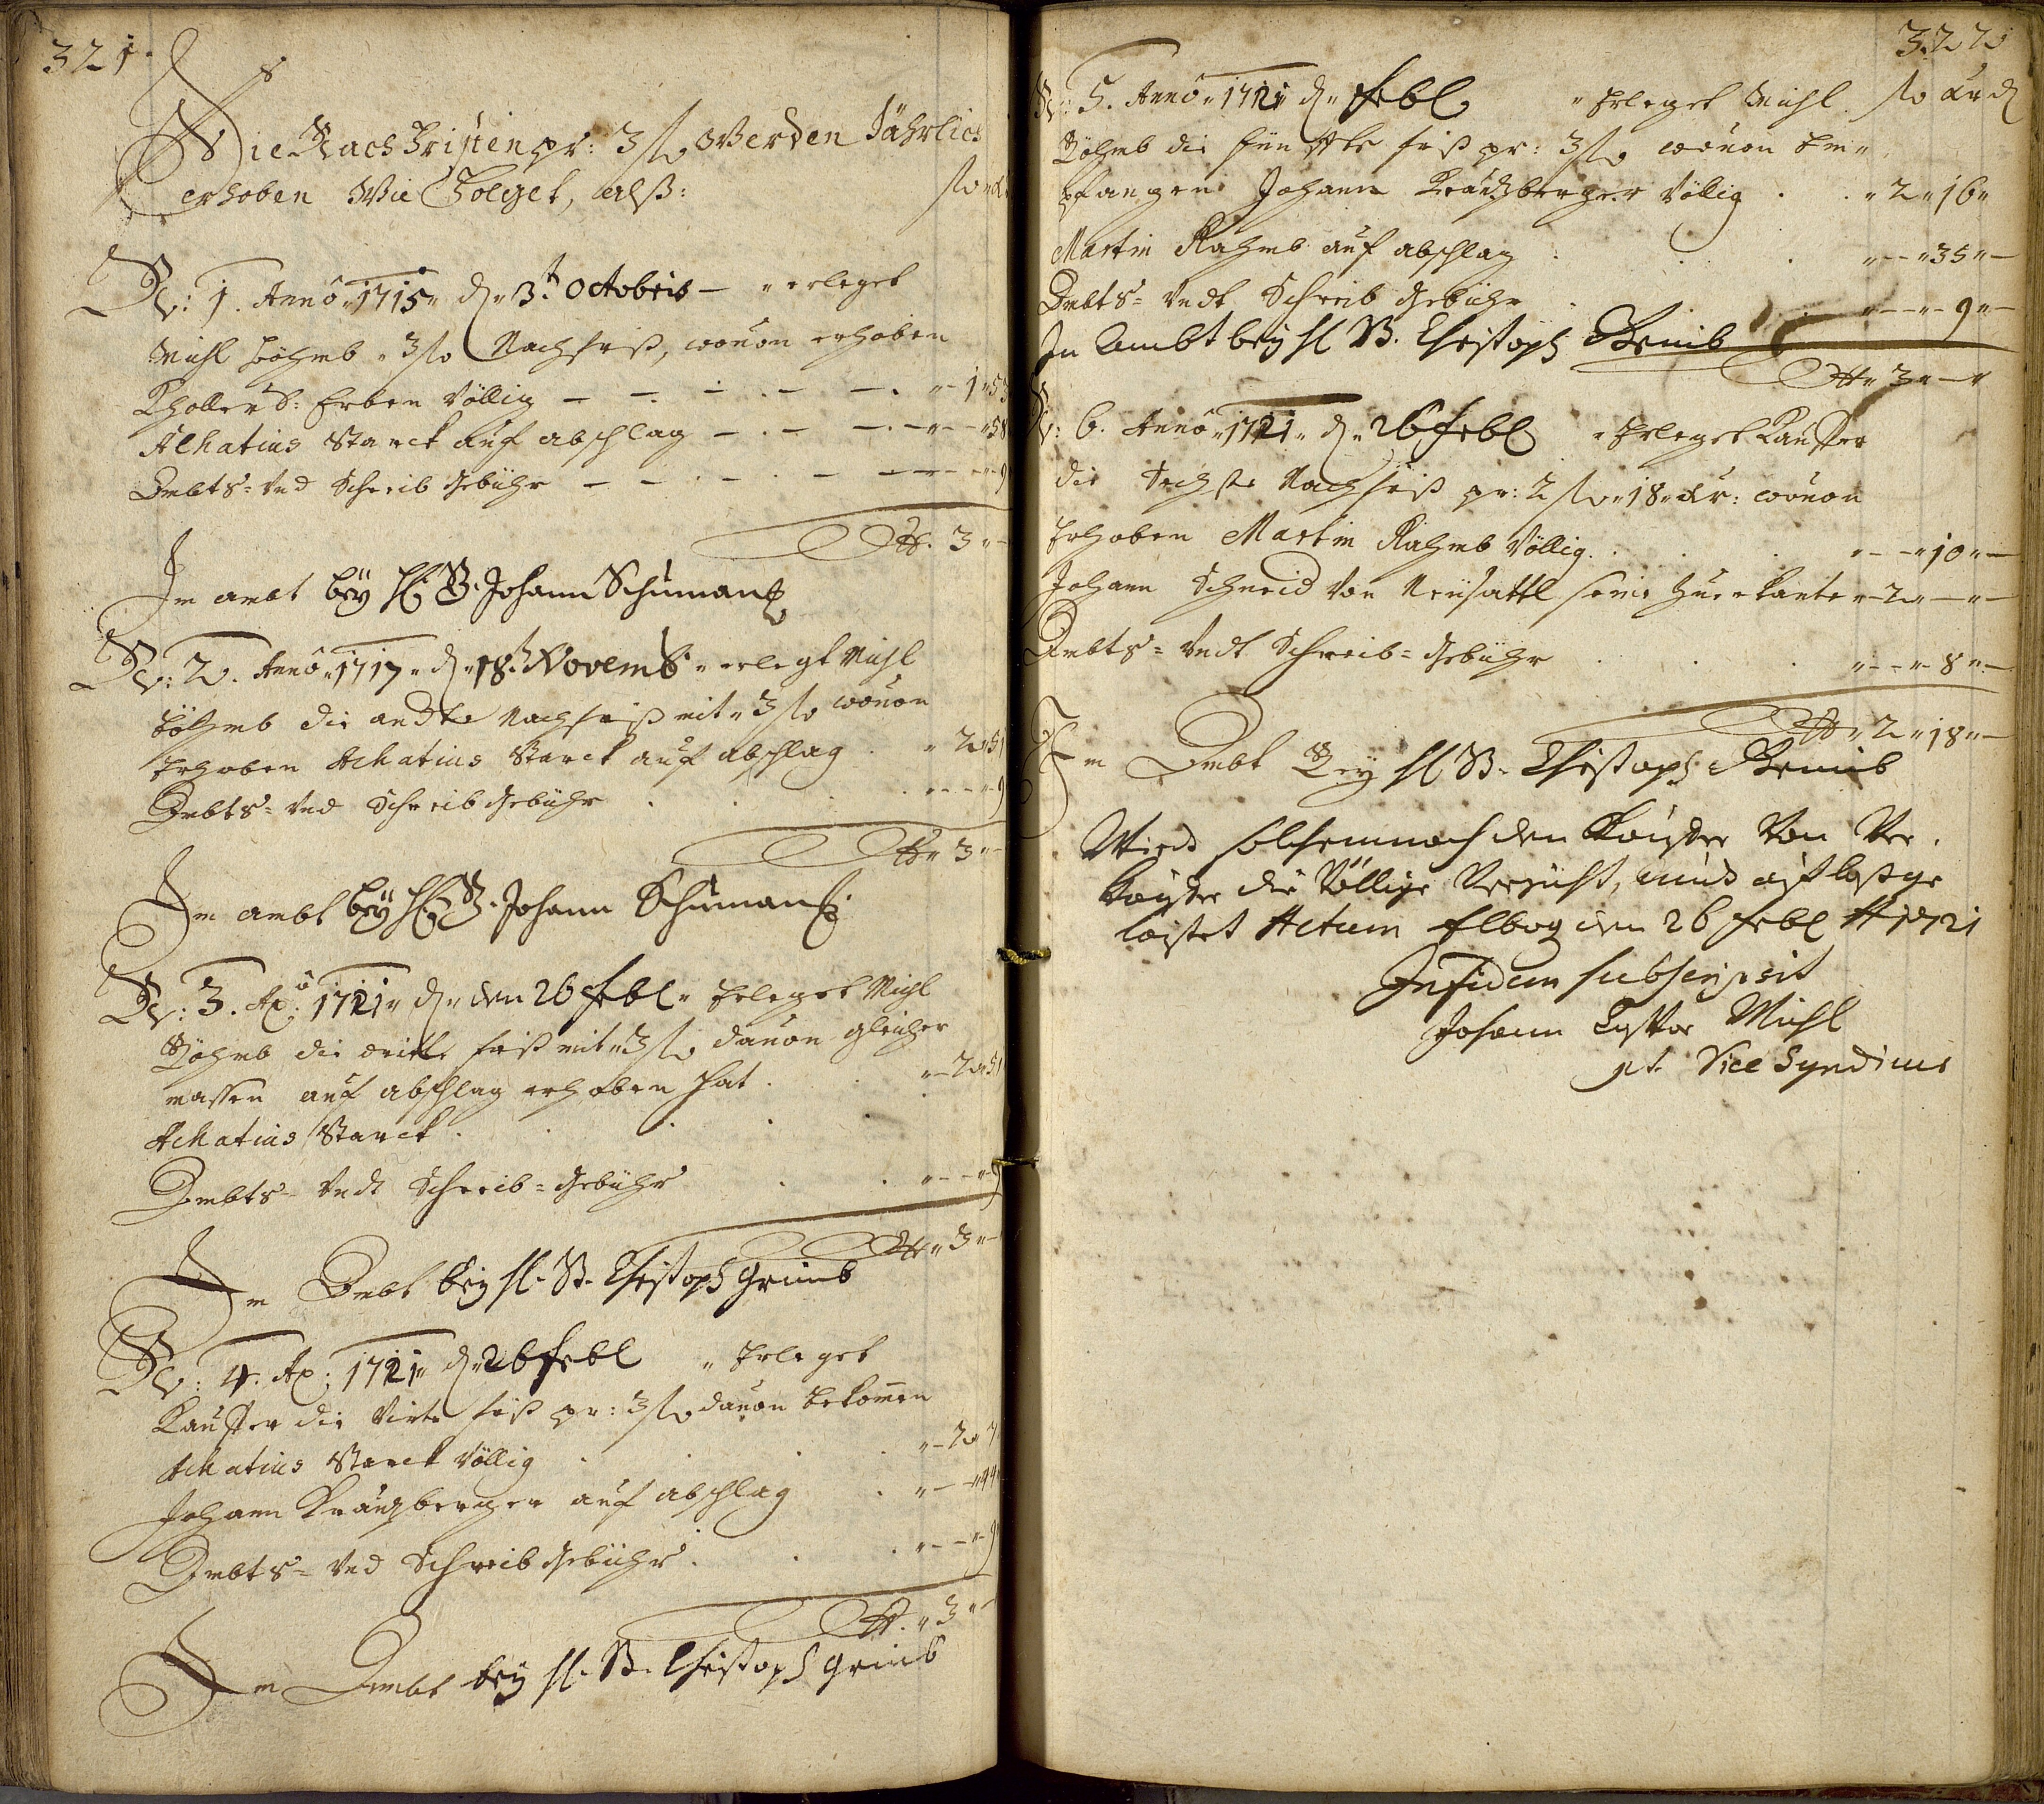 321.
Die Nach Fristen pr: 3 fl Werden Jährlich
erhoben Wie Folget, alß: fl
N: 1. Anno 1715 d. 3t. Octobris – erleget
Michl Böhmb 3 fl Nachfrist, wouon erhoben
S: Erben Völlig – 1 53
Achatius Starck auf abschlag – 58
Ambts- Vnd Schreib Gebühr – 9
3 –
Im ambt beÿ H. B. Johann Schuman
N: 2. Anno 1717 d. 18t. Novemb. erlegt Michl
Böhmb die andte Nachfrist mit 3 fl wouon
Erhoben Achatius Starck auf abschlag . 2 51
Ambts- Vnd Schreib Gebühr . . . 9
3 –
Im ambt beÿ H. B. Johann Schuman
N: 3. Ao: 1721 d. den 26 Febl Erleget Michl
Böhmb die dritte frist mit 3 fl dauon gleicher
massen auf abschlag erhoben hat . . 2 51
Achatius Starck . . . .
Ambts- Vndt Schreib-Gebühr . . 9
3 –
Im Ambt beÿ H. B. Christoph Grimb
N: 4. Ao: 1721 d. 26 Febl Erleget
Kauffer die Virte frist pr: 3 fl dauon bekom̅en
Achatius Starck Völlig . . . 2 7
Johann Kräuzberger auf abschlag . 44
Ambts- Vnd Schreib Gebühr . . . 9
3 –
Im Ambt beÿ H. B. Christoph Grimb
322
N: 5. Anno 1721 d. Febl Erleget Michl fl xr d
Böhmb die fünffte frist pr: 3 fl wouon Em-
pfangen Johann Kräuzberger Völlig . . 2 16
Martin Rahmb auf abschlag . . . 35 –
Ambts- Vndt Schreib Gebühr . . 9 –
In Ambt beÿ H B. Christoph Grimb
3 –
N: 6. Anno 1721 d. 26 Febl Erleget Kauffer
die Sechste Nachfrist pr: 2 fl 18 xr: wouon
Erhoben Martin Rahmb Völlig . . . 10 –
Johann Schmid Von Neusattl seine 2 – –
Ambts- Vndt Schreib-Gebühr . . . 8 –
2 18 –
Im Ambt Beÿ H B. Christoph Grimb
Wird solchemnach dem Kauffer Von Ver-
kauffer die Völlige Verzicht, und aufloßge
leistet Actum Elbog den 26 Febl A 1721
In fidem subscripsit
Johann Michl
pt. Vice Syndicus